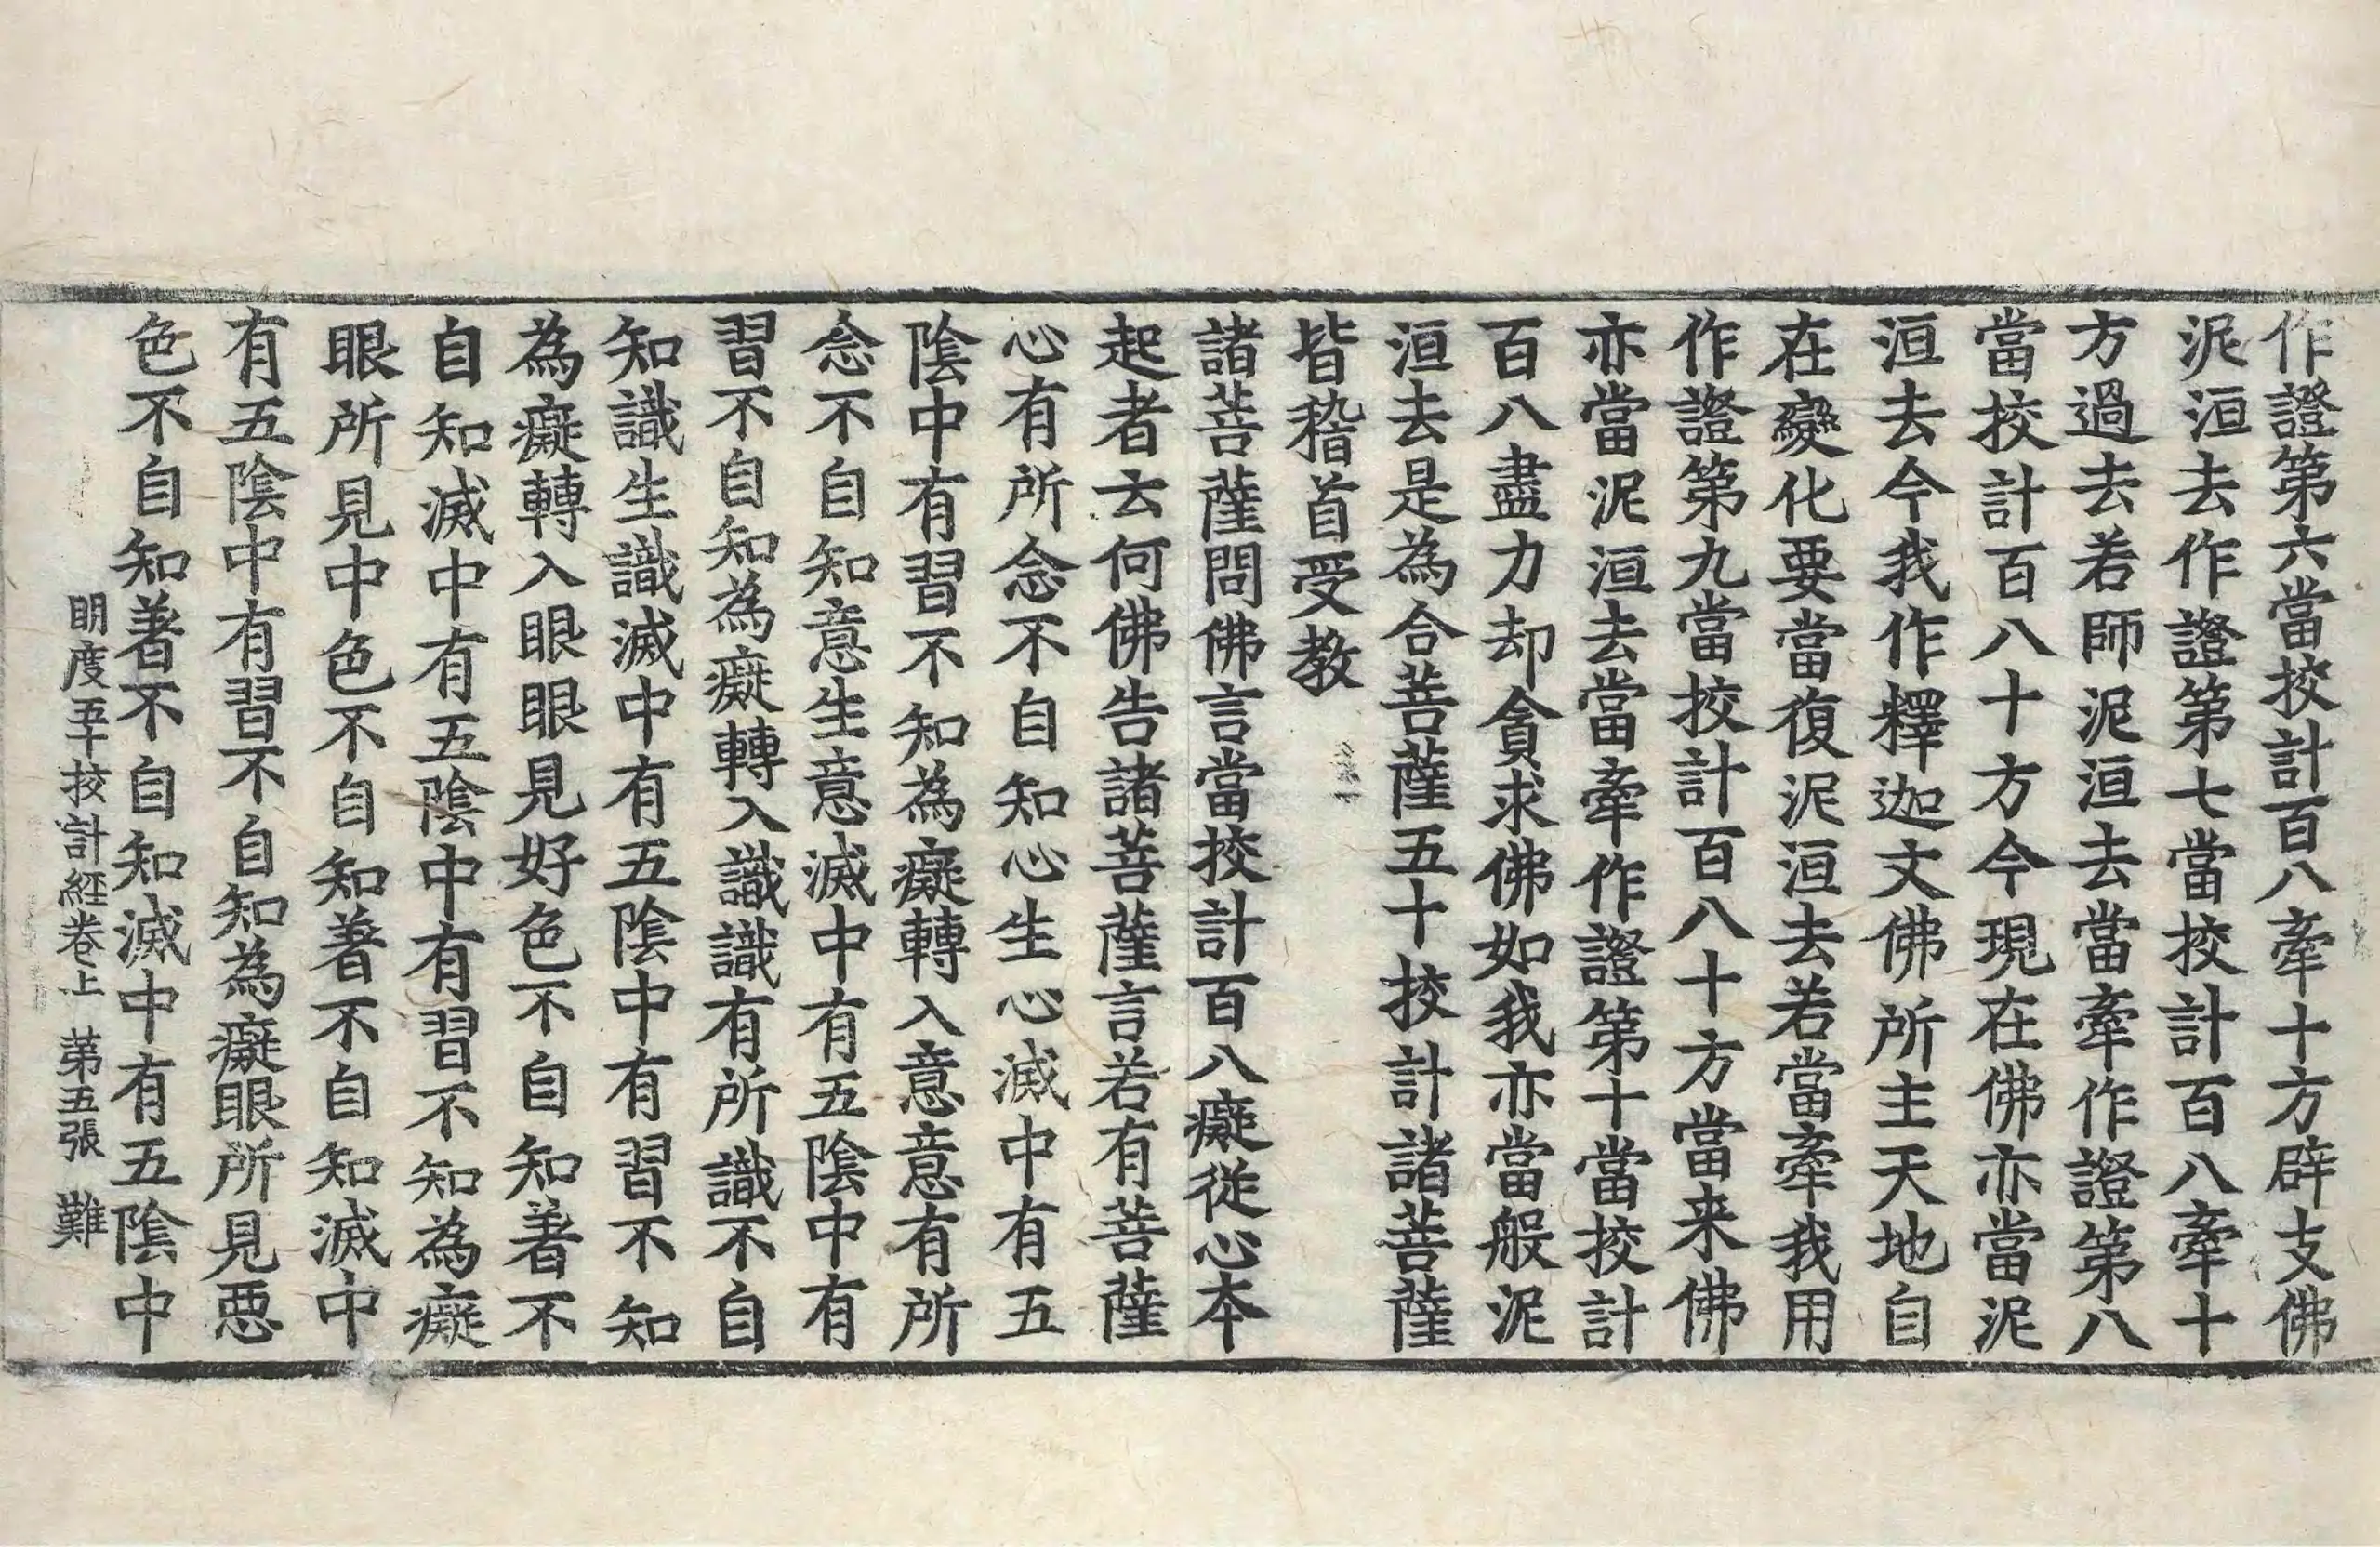 作證第六當挍計百八牽十方辟支佛
泥洹去作證第七當挍計百八牽十
方過去若師泥洹去當牽作證第八
當挍計百八十方今現在佛亦當泥
洹去今我作釋迦文佛所主天地自
在變化要當復泥洹去若當牽我用
作證第九當挍計百八十方當来佛
亦當泥洹去當牽作證第十當挍計
百八盡力却貪求佛如我亦當般泥
洹去是為合菩薩五十挍計諸菩薩
皆稽首受教
諸菩薩問佛言當挍計百八癡從心本
起者云何佛告諸菩薩言若有菩薩
心有所念不自知心生心滅中有五
陰中有習不知為癡轉入意意有所
念不自知意生意滅中有五陰中有
習不自知為癡轉入識識有所識不自
知識生識滅中有五陰中有習不知
為癡轉入眼眼見好色不自知著不
自知滅中有五陰中有習不知為癡
眼所見中色不自知著不自知滅中
有五陰中有習不自知為癡眼所見惡
色不自知著不自知滅中有五陰中
明度五十挍計経卷上 苐五張 難